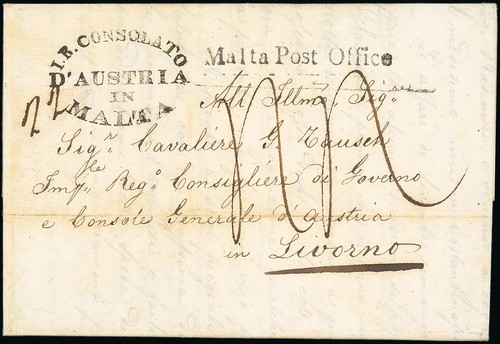 I.R. CONSOLATO
D'AUSTRIA
IN
MALTA
Malta Post Office
22
All Illmo Sigre
Sigr Cavaliére G. Tausch
Imple Rego Consigliére di Governo
e Console Generale d'Austria
in Livorno